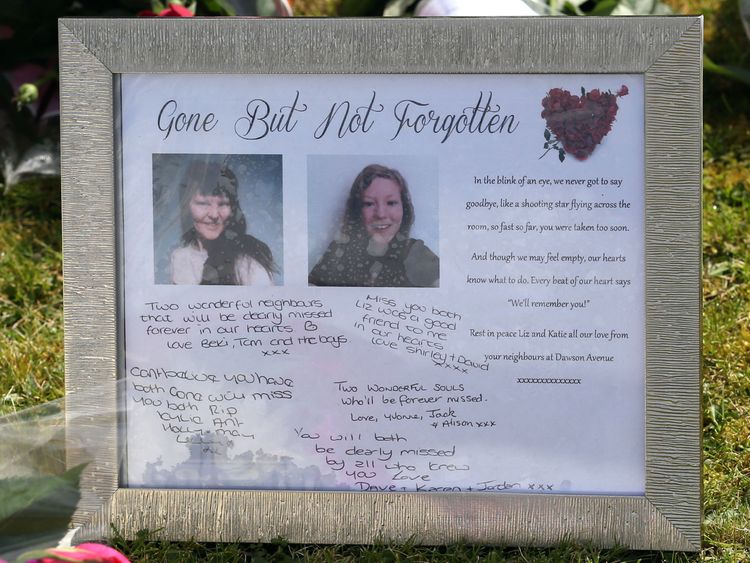 Gone But Not Forgotten
In the blink of an eye, we never got to say
goodbye, like a shooting star flying across the
room, so fast so far, you were taken too soon.
And though we may feel empty, our hearts
know what to do. Every beat of our heart says
"We'll remember you!"
Rest in peace Liz and Katie all our love from
your neighbours at Dawson Avenue
xxxxxxxxxxxxxx
Two wonderful neighbours
that will be dearly missed
forever in our hearts
love Beki, Tom and the boys
xxx
Miss you both
Liz was a good
friend to me
in our hearts
love Shirley + David
xxxx
Cant believe you have
both Gone will miss
you both R.I.P
Kylie Ant
Holly + may
Two wonderful souls
who'll be forever missed.
Love, Yvonne, Jack
& Alison xxx
You will both
be dearly missed
by all who knew
you Love
Dave + Karen + Jordan xxx